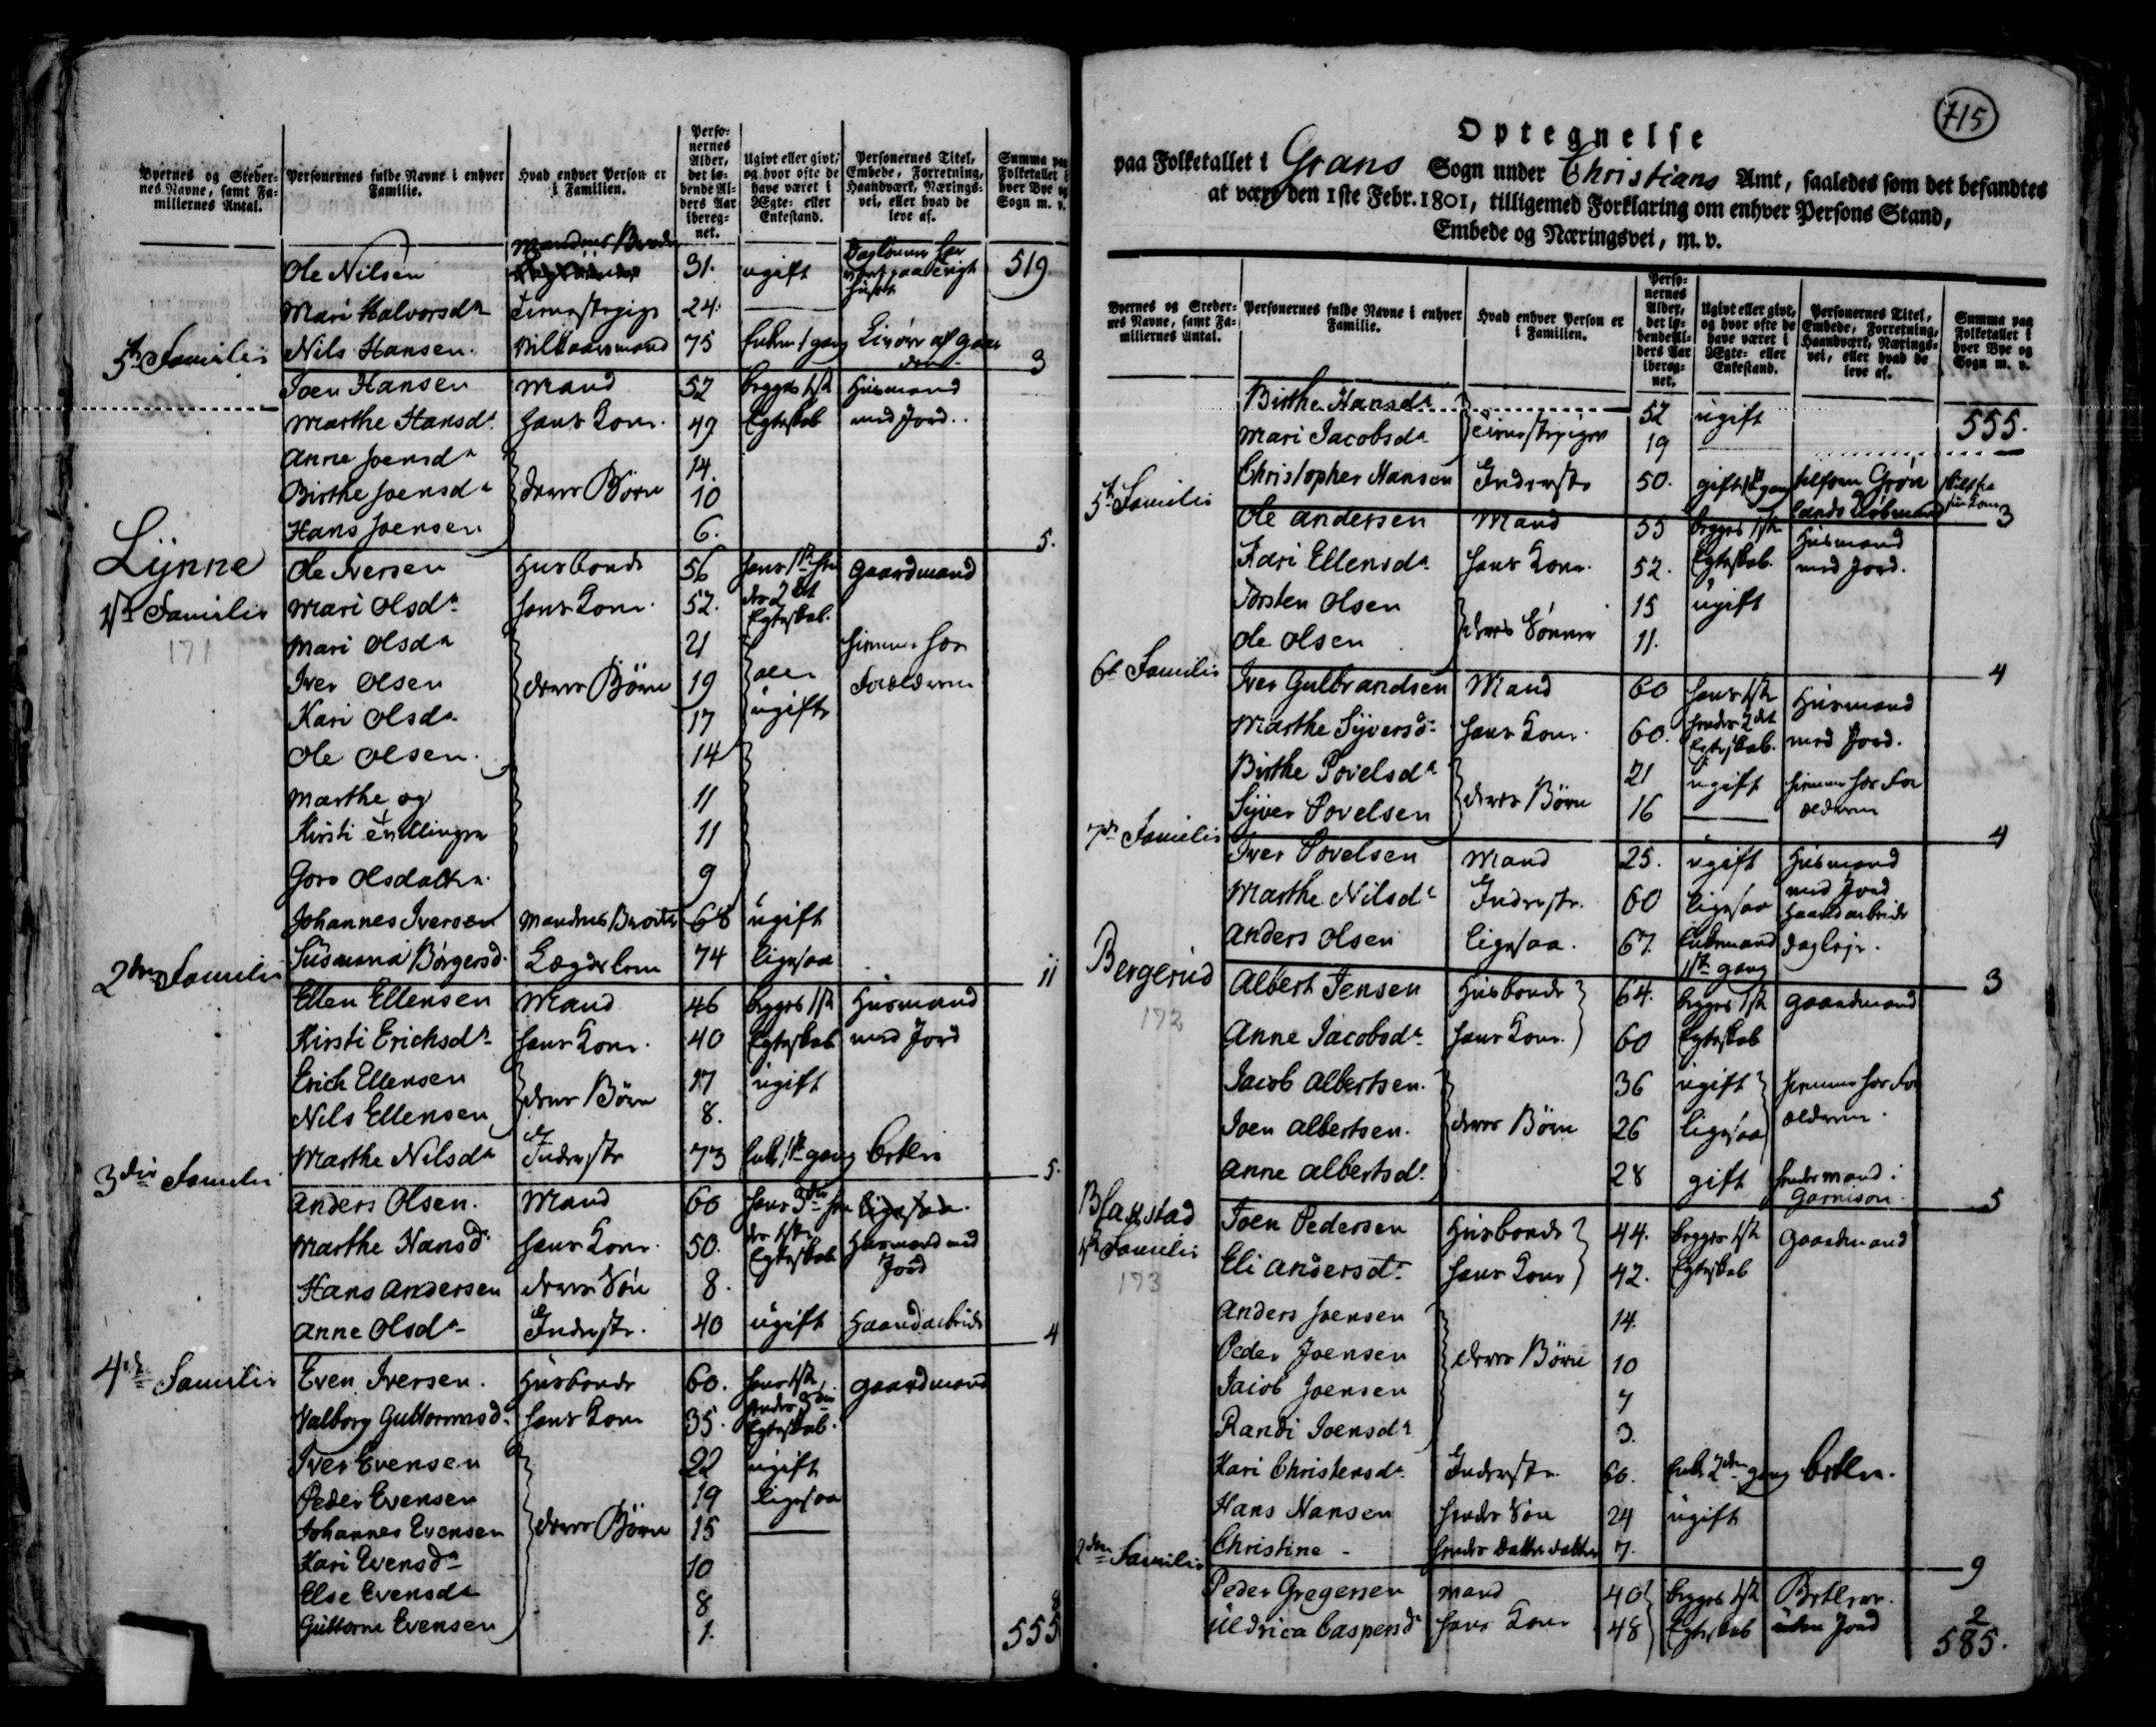 Byernes og Steder-
nes Navne, samt Fa-
miliernes Antal.
Personernes fulde Navne i enhver
Familie.
Hvad enhver Person er
i Familien.
Perso-
nernes
Alder,
det lø-
bende Al-
ders Aar
ibereg-
net.
Ugivt eller givt,
og hvor ofte de
have været i
Ægte- eller
Enkestand.
Personernes Titel,
Embede, Forretning,
Haandværk, Nærings-
vei, eller hvad de
leve af.
Summa paa
Folketallet i
hver Bye og
Sogn m. v.
Mandens
Ole Nilsen 31. ugift 519
Mari Halvorsdr 24.
5te Familie Nils Hansen 75 3
Joen Hansen Mand 52 begges 1ste Husmand
Marthe Hansdr hans Kone 49 Egteskab med Jord.
Anne Joensdr 14.
Birthe Joensdr deres Børn 10
Hans Joensen 6. 5.
Lynne
1ste Familie
171
Ole Iversen Husbonde 56 Gaardmand
Mari Olsdr hans Kone 52. Egteskab.
Mari Olsdr 21 hiemme hos
Iver Olsen deres Børn 19 alle Forældrene
Kari Olsdr 17 ugifte
Ole Olsen 14
Marthe og 11
Kirsti Tvillinger 11
Goro Olsdatter 9
Johannes Iversen Mandens Broder 68 ugift
Susanna Børgersd. Lægdslem 74 ligesaa 11
2den Familie
Ellen Ellensen Mand 46 begges 1ste Husmand
Kirsti Erichsdr hans Kone 40 Egteskab med Jord
Erich Ellensen deres Børn 17 ugift
Nils Ellensen 8.
Marthe Nilsdr Inderste 73 Enke 1ste gang betler 5.
3die Familie
Anders Olsen Mand 60
Marthe Hansd. hans Kone 50. Egteskab Husmand med Jord
Hans Andersen deres Søn 8.
Anne Olsdr Inderste 40 ugift Haandarbeide 4
4de Familie
Even Iversen Husbonde 60. hans 1ste Gaardmand
Valborg Guttormsd. hans Kone 35. Egteskab.
Iver Evensen 22 ugift
Peder Evensen 19 ligesaa
Johannes Evensen deres Børn 15
Kari Evensdr 10
Else Evensdr 8
Guttorm Evensen 1. 8
555
715
Optegnelse
paa Folketallet i Grans Sogn under Christians Amt, saaledes som det befandtes
at være den 1ste Febr. 1801, tilligemed Forklaring om enhver Persons Stand,
Embede og Næringsvei, m. v.
Byernes og Steder-
nes Navne, samt Fa-
miliernes Antal.
Personernes fulde Navne i enhver
Familie.
Hvad enhver Person er
i Familien.
Perso-
nernes
Alder,
det lø-
bende Al-
ders Aar
ibereg-
net.
Ugivt eller givt,
og hvor ofte de
have været i
Ægte- eller
Enkestand.
Personernes Titel,
Embede, Forretning,
Haandværk, Nærings-
vei, eller hvad de
leve af.
Summa paa
Folketallet i
hver Bye og
Sogn m. v.
Birthe Hansdr 52 ugift 555.
Mari Jacobsdr 19
5te Familie Christopher Hansen Inderste 50. 3
Ole Andersen Mand 55 begges 1ste Husmand
Kari Ellensdr hans Kone 52. Egteskab. med Jord.
Torsten Olsen deres Sønner 15 ugift
Ole Olsen 11.
6te Familie 4
Iver Gulbrandsen Mand 60 hans 1ste Husmand
Marthe Syversd. hans Kone 60. hendes 2det Egteskab. med Jord.
Birthe Povelsdr deres Børn 21 ugift hiemme hos For
Syver Povelsen 16 ældrene
7de Familie 4
Iver Povelsen Mand 25. ugift Husmand
Marthe Nilsdr Inderste 60 ligesaa med Jord Haandarbeide
Anders Olsen ligesaa. 67. Enkemand 1ste gang dagleje. 3
Bergerud
172
Albert Jensen Husbonde 64. begges 1ste Gaardmand
Anne Jacobsdr hans Kone 60 Egteskab
Jacob Albertsen 36 ugift hiemme hos For
Joen Albertsen deres Børn 26 ligesaa ældrene.
Anne Albertsdr 28 gift hendes Mand i Garnison. 5
Blakstad
1ste Familie
173
Joen Pedersen Husbonde 44. begges 1ste Gaardmand
Eli Andersdr hans Kone 42. Egteskab
Anders Joensen 14.
Peder Joensen deres Børn 10
Jacob Joensen 7
Randi Joensdr 3.
Kari Christensdr Inderste 60. Enke 2den gang betler.
Hans Hansen hendes Søn 24 ugift
Christine hendes Datter datter 7. 9
2den Familie
Peder Gregersen Mand 40 begges 1ste Betlere.
Uldrica Caspersdr hans Kone 48 Egteskab uden Jord 2
585.